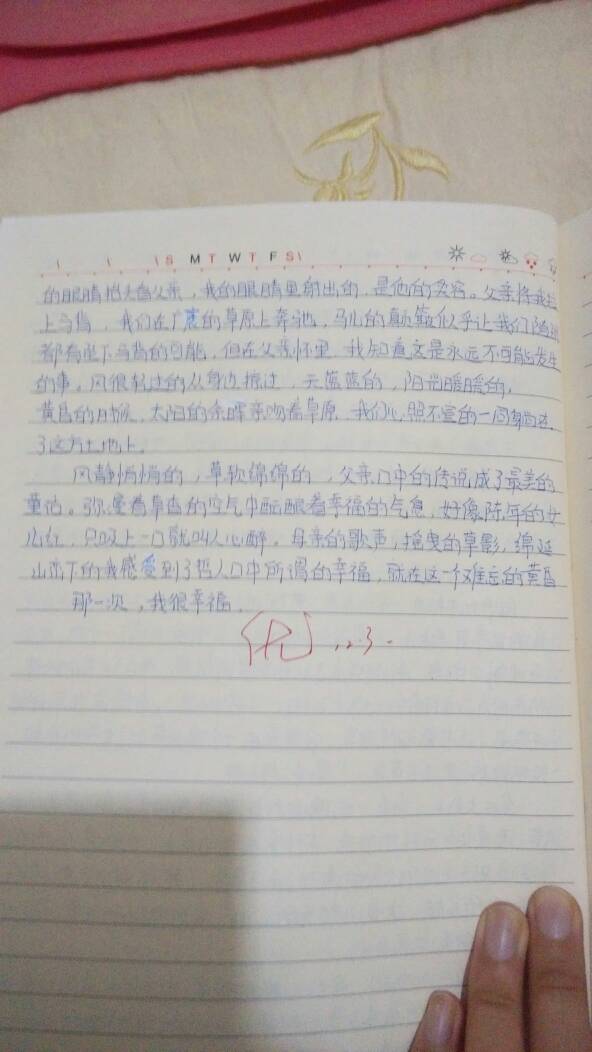 S M T W T F S
的眼睛抬头看父亲，我的眼睛里射出的，是他的笑容。父亲将我
上马背，我们在广袤的草原上奔驰，马儿的颠簸似乎让我们随时
都有坠下马背的可能，但在父亲怀里，我知道这是永远不可能发生
的事。风很轻过的从身边掠过，天蓝蓝的，阳光暖暖的，
黄昏的时候，太阳的余晖亲吻着草原，我们心照不宣的一同
了这方土地上。
风静悄悄的，草软绵绵的，父亲口中的传说成了最美的
童话。弥漫着草香的空气中酝酿着幸福的气息，好像陈年的女
儿红，只吸上一口就叫人心醉。母亲的歌声，摇曳的草影，绵延
山峦下的我感受到了哲人口中所谓的幸福，就在这一个难忘的黄昏
那一次，我很幸福。
优 12.3.